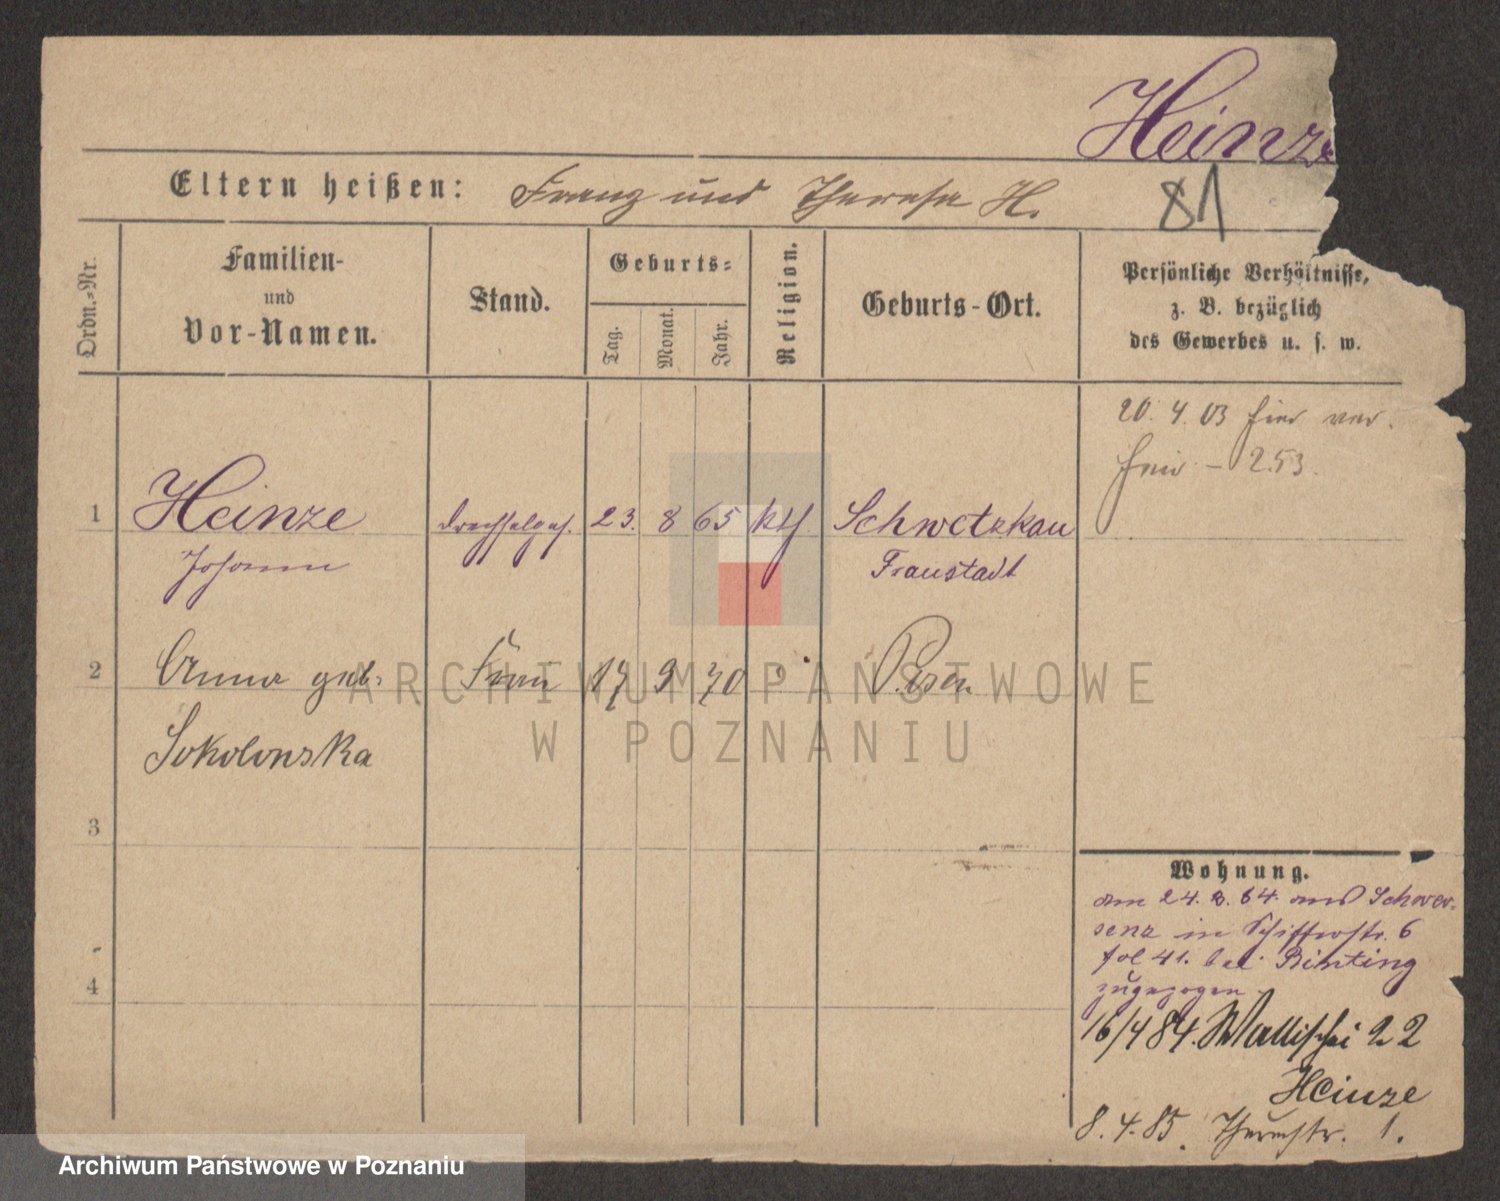 Heinze
Eltern heißen: Franz und Therese H.
81
Ordn.=Nr.
Familien-
und
Vor-Namen.
Stand.
Geburts=
Tag.
Monat.
Jahr.
Religion.
Geburts-Ort.
Persönliche Verhältnisse,
z. B. bezüglich
des Gewerbes u. s. w.
20. 4. 03 hier ver.
- 253.
1 Heinze Drechslerges. 23. 8 65 kth Schwetzkau
Johann Fraustadt
2 Anna geb. Frau 17 9 70 Posen
Sokolowska
3
4
Wohnung.
am 24. 2. 84. aus Schwer-
senz in Schifferstr. 6
fol 41. bei Binting
zugezogen
16/4 84. Wallischei 22
Heinze
8. 4. 85. 1.
ARCHIWUM PAŃSTWOWE
W POZNANIU
Archiwum Państwowe w Poznaniu